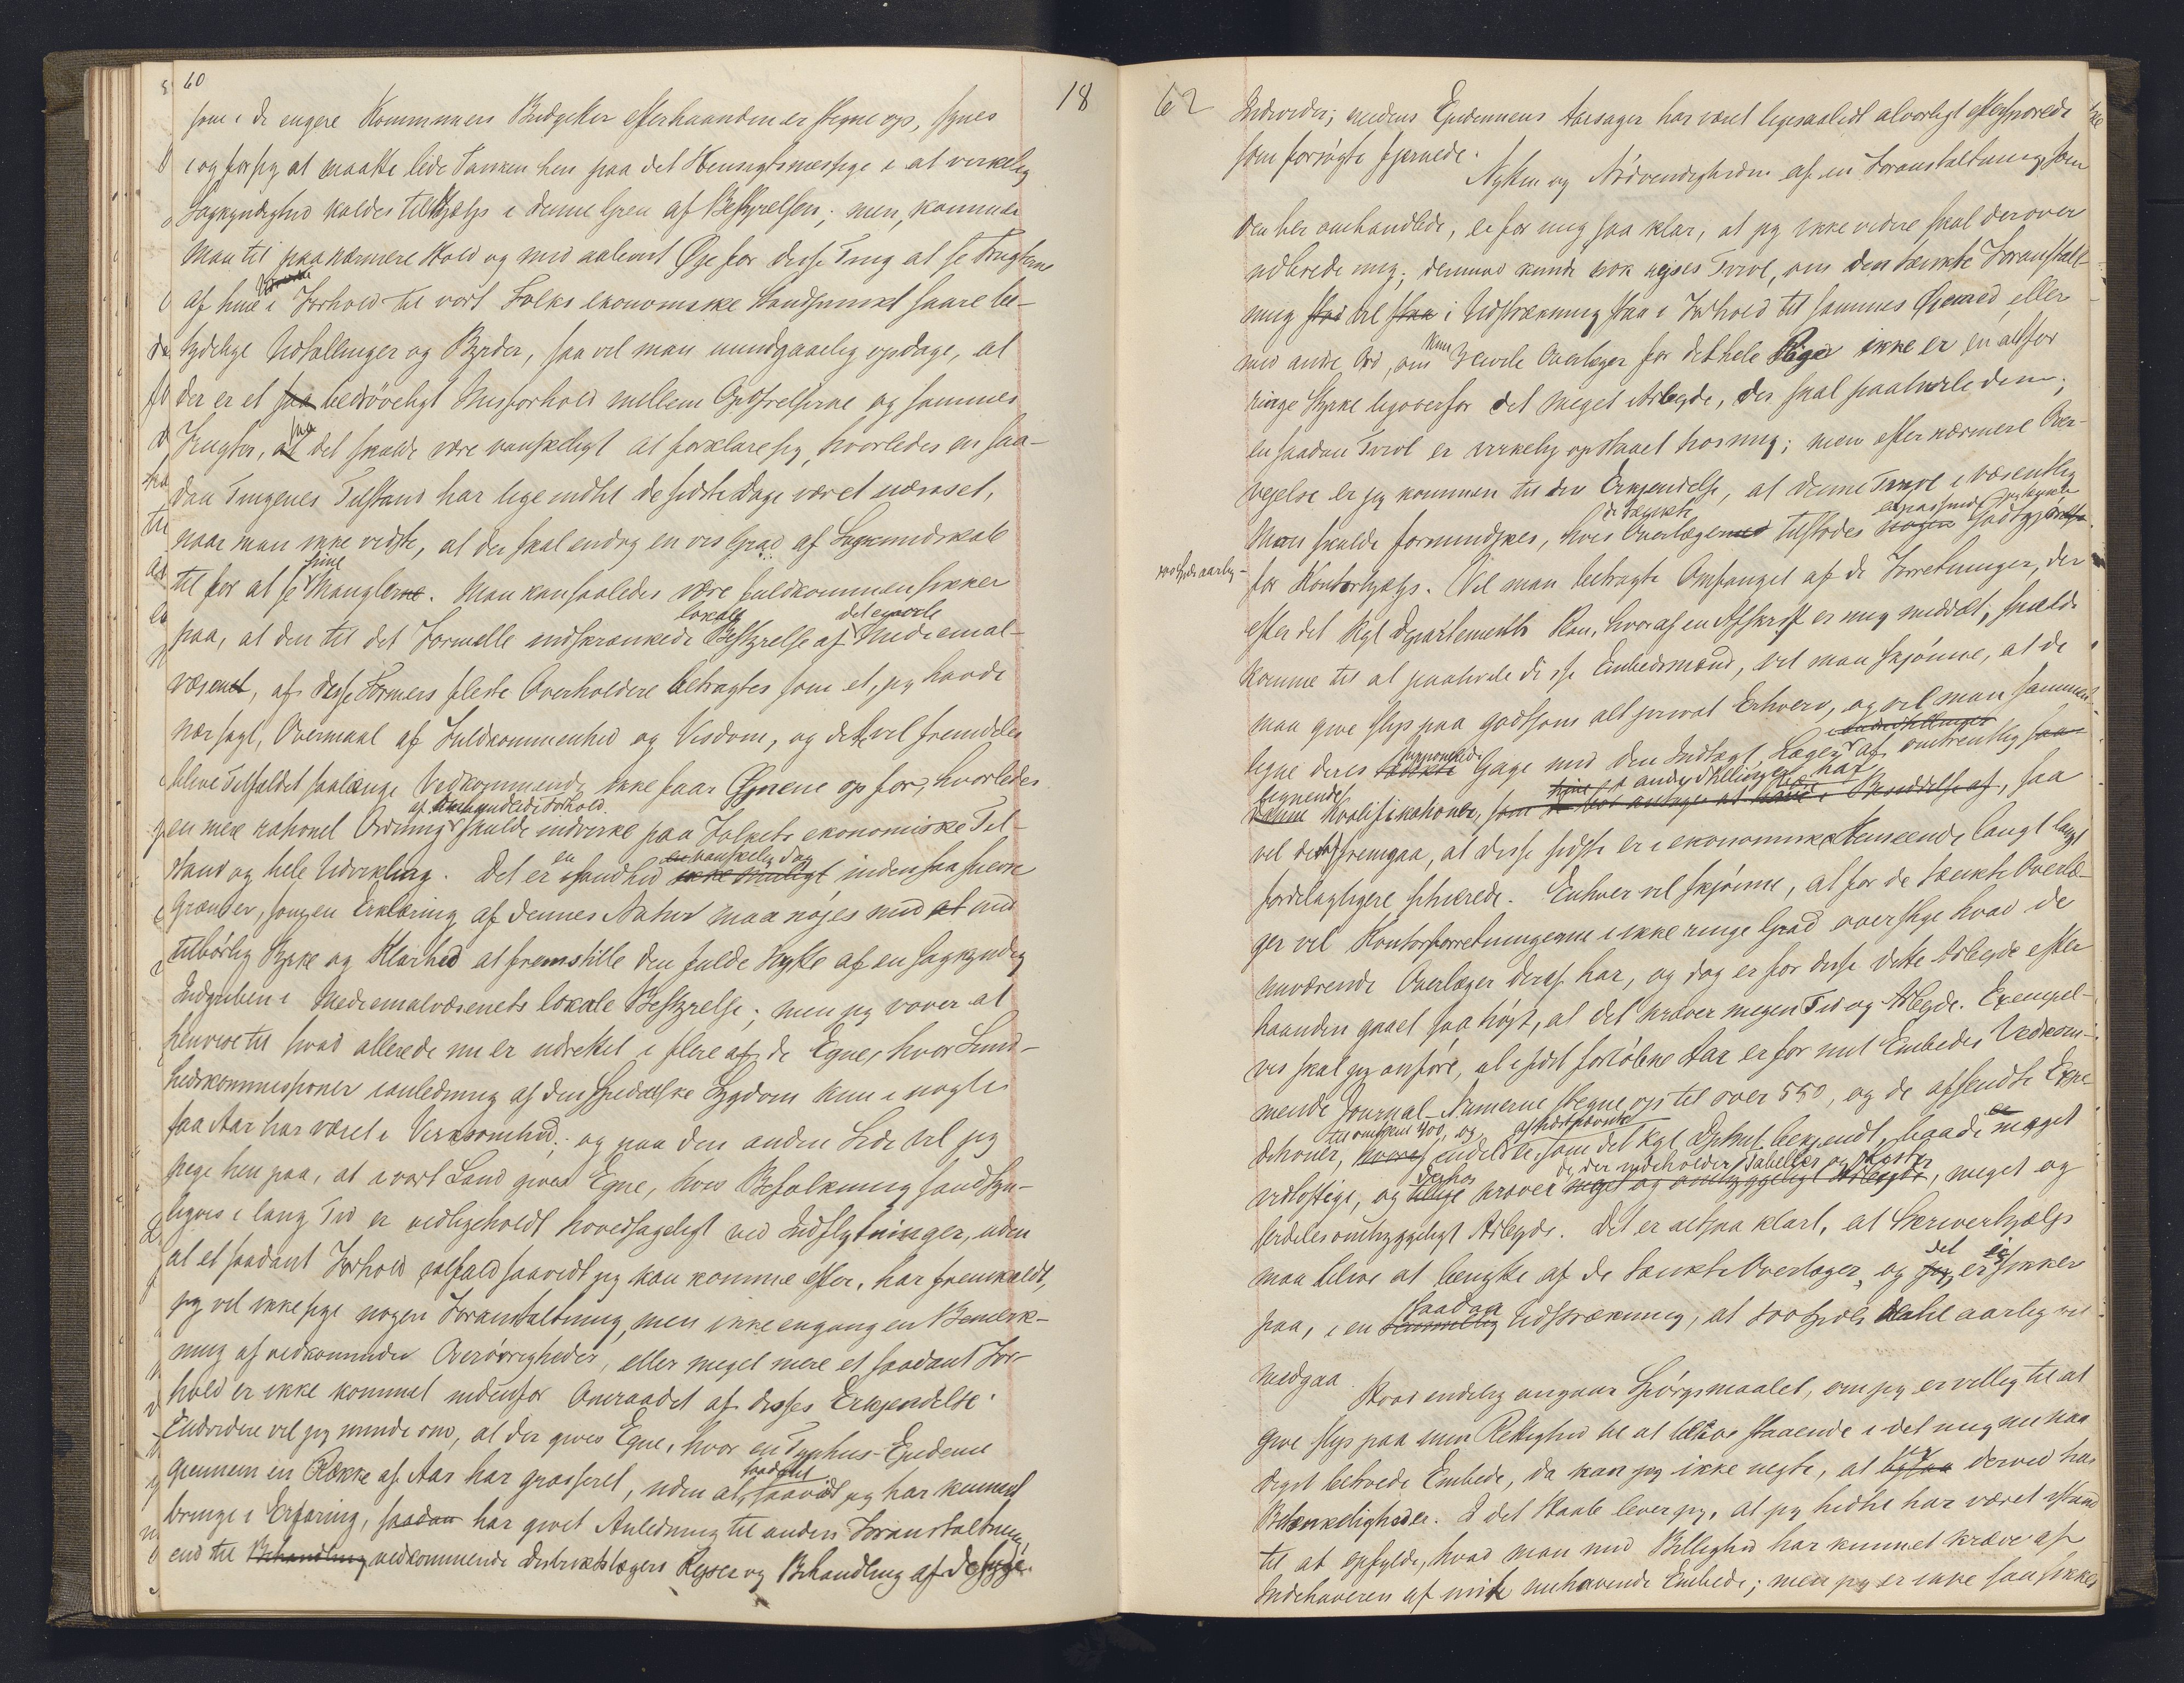 60
som i de engere Kommuners Budgetter efterhaanden er stegne op, synes
i og for sig at maatte lede Tanken hen paa det Hensigtsmæssige i at virkelig
Sagkyndighed kaldes til Hjælp i denne Gren af Bestyrelsen; men, kommer
man til paa nærmere Hold og med aabent Øje for disse Ting at se Frugterne
af hine i Forhold til vort Folks ekonomiske Standpunkt saare be-
tydelige Udtællinger og Byrder, saa vil man uundgaaelig opdage, at
der er et saa bedrøveligt Misforhold mellem Opofrelserne og sammes
Frugter, at det skulde være vanskeligt at forklare sig, hvorledes en saa-
dan Tingenes Tilstand har lige indtil de sidste Dage været uænset,
naar man ikke vidste, at der skal endog en vis Grad af Sagkundskab
til for at se hine Manglerne. Man kan saaledes være fuldkommen sikker
lokale det civile
paa, at den til det Formelle indskrænkede Bestyrelse af Medicinal-
væsenet, af disse Formers fleste Overholdere betragtes som et, jeg havde
nær sagt, Overmaal af Fuldkommenhed og Visdom, og dette vil fremdeles
blive Tilfældet saalænge Vedkommende ikke faar Øjnene op for, hvorledes
af omhandlede Forhold
en mere rationel Ordning skulde indvirke paa Folkets ekonomiske Til-
en en vanskelig Sag
stand og hele Udvikling. Det er i Sandhed ikke muligt inden saa snevre
Grændser, som en Erklæring af dennes Natur maa nøjes med at med
tilbørlig Styrke og Klarhed at fremstille den fulde Nytte af en sagkyndig
Indgriben i Medicinalvæsenets lokale Bestyrelse; men jeg vover at
henvise til hvad allerede nu er udrettet i flere af de Egne, hvor Sund-
hedskommissioner i anledning af den spedalske Sygdom kun i nogle
faa Aar har været i Virksomhed; og paa den anden Side vil jeg
pege hen paa, at i vort Land gives Egne, hvis Befolkning sandsyn-
ligvis i lang Tid er vedligeholdt hovedsageligt ved Indflytninger, uden
at et saadant Forhold ialfald saavidt jeg kan komme efter, har fremkaldt,
jeg vil ikke sige nogen Foranstaltning, men ikke engang en Bemærk-
ning af vedkommende Overøvrigheder, eller meget mere et saadant For-
hold er ikke kommet indenfor Omraadet af disses Erkjendelse.
Endvidere vil jeg minde om, at der gives Egne, hvor en Typhus-Epidemi
gjennem en Række af Aar har grasseret, uden at saadant saavidt jeg har kunnet
bringe i Erfaring, saadan har givet Anledning til anden Foranstaltning
end til Behandling vedkommende Distriktslægers Rejser og Behandling af de syge
18
62
Individer; medens Epidemiens Aarsager har været ligesaalidt alvorligt efterspurgte
som forsøgte fjernede.
Nytten og Nødvendigheden af en Foranstaltning som
den her omhandlede, er for mig saa klar, at jeg ikke videre skal derover
udbrede mig; derimod kunde nok rejses Tvivl, om den tænkte Foranstalt-
ning stod vil staa i Udstrækning staa i Forhold til sammes Øjemed eller
med andre Ord, om kun civile Overlæger for det hele Rige ikke er en altfor
ringe Styrke ligeoverfor det meget Arbejde, der skal paahvile dem;
en saadan Tvivl er virkelig opstaaet hos mig; men efter nærmere Over-
vejelse er jeg kommen til den Erkjendelse, at denne Tvivl i væsentlig
de tænkte en passende
Mon skulde formindskes, hvis Overlægerne tilstodes nogen Godtgjørelse
100 Spd aarlig
for Kontorhjælp. Vil man betragte Omfanget af de Forretninger, der
efter det Kgl Departements Plan, hvoraf en Afskrift er mig meddelt, skulde
komme til at paahvile disse Embedsmænd, vil man skjønne, at de
maa give slip paa godtsom alt privat Erhverv, og vil man sammen-
ligne deres tænkte Gage med den Indtægt, Læger af omtrentlig saa-
i andre Stillinger har
lignende Kvalifikationer, som i Besiddelse af, saa
vil det fremgaa, at disse sidste er i ekonomisk Henseende langt langt
fordelagtigere situerede. Enhver vil skjønne, at for de tænkte Overlæ-
ger vil Kontorforretningerne i ikke ringe Grad overstige hvad de
nuværende Overlæger deraf har, og dog er for disse dette Arbejde efter
haanden gaaet saa højt, at det kræver megen Tid og Arbejde. Exempel-
vis skal jeg anføre, at i sidst forløbne Aar er for mit Embedes Vedkom-
mende Journal-Numerne stegne op til over 550, og de afsendte Expe-
til omtrent 400, og
ditioner, hvoraf endel er som det Kgl Departmt bekjendt, baade meget
de der indeholder Tabeller og Lister
vidløftige, og tillige kræver meget og omhyggeligt Arbejde, meget og
serdeles omhyggeligt Arbejde. Det er altsaa klart, at Skriverhjælp
maa blive at benytte af de tænkte Overlæger, og det er jeg sikker
paa, i en saadan temmelig Udstrækning, at 100 Spdlr dertil aarlig vil
medgaa.
Hvad endelig angaar Spørgsmaalet, om jeg er villig til at
give slip paa min Rettighed til at blive staaende i det mig nu naa-
digst betroede Embede, da kan jeg ikke negte, at jeg derved har
Betænkeligheder. I det Haab lever jeg, at jeg hidtil har været istand
til at opfylde, hvad man med Billighed har kunnet kræve af
Indehaveren af mit nuhavende Embede; men jeg er ikke saa sikker